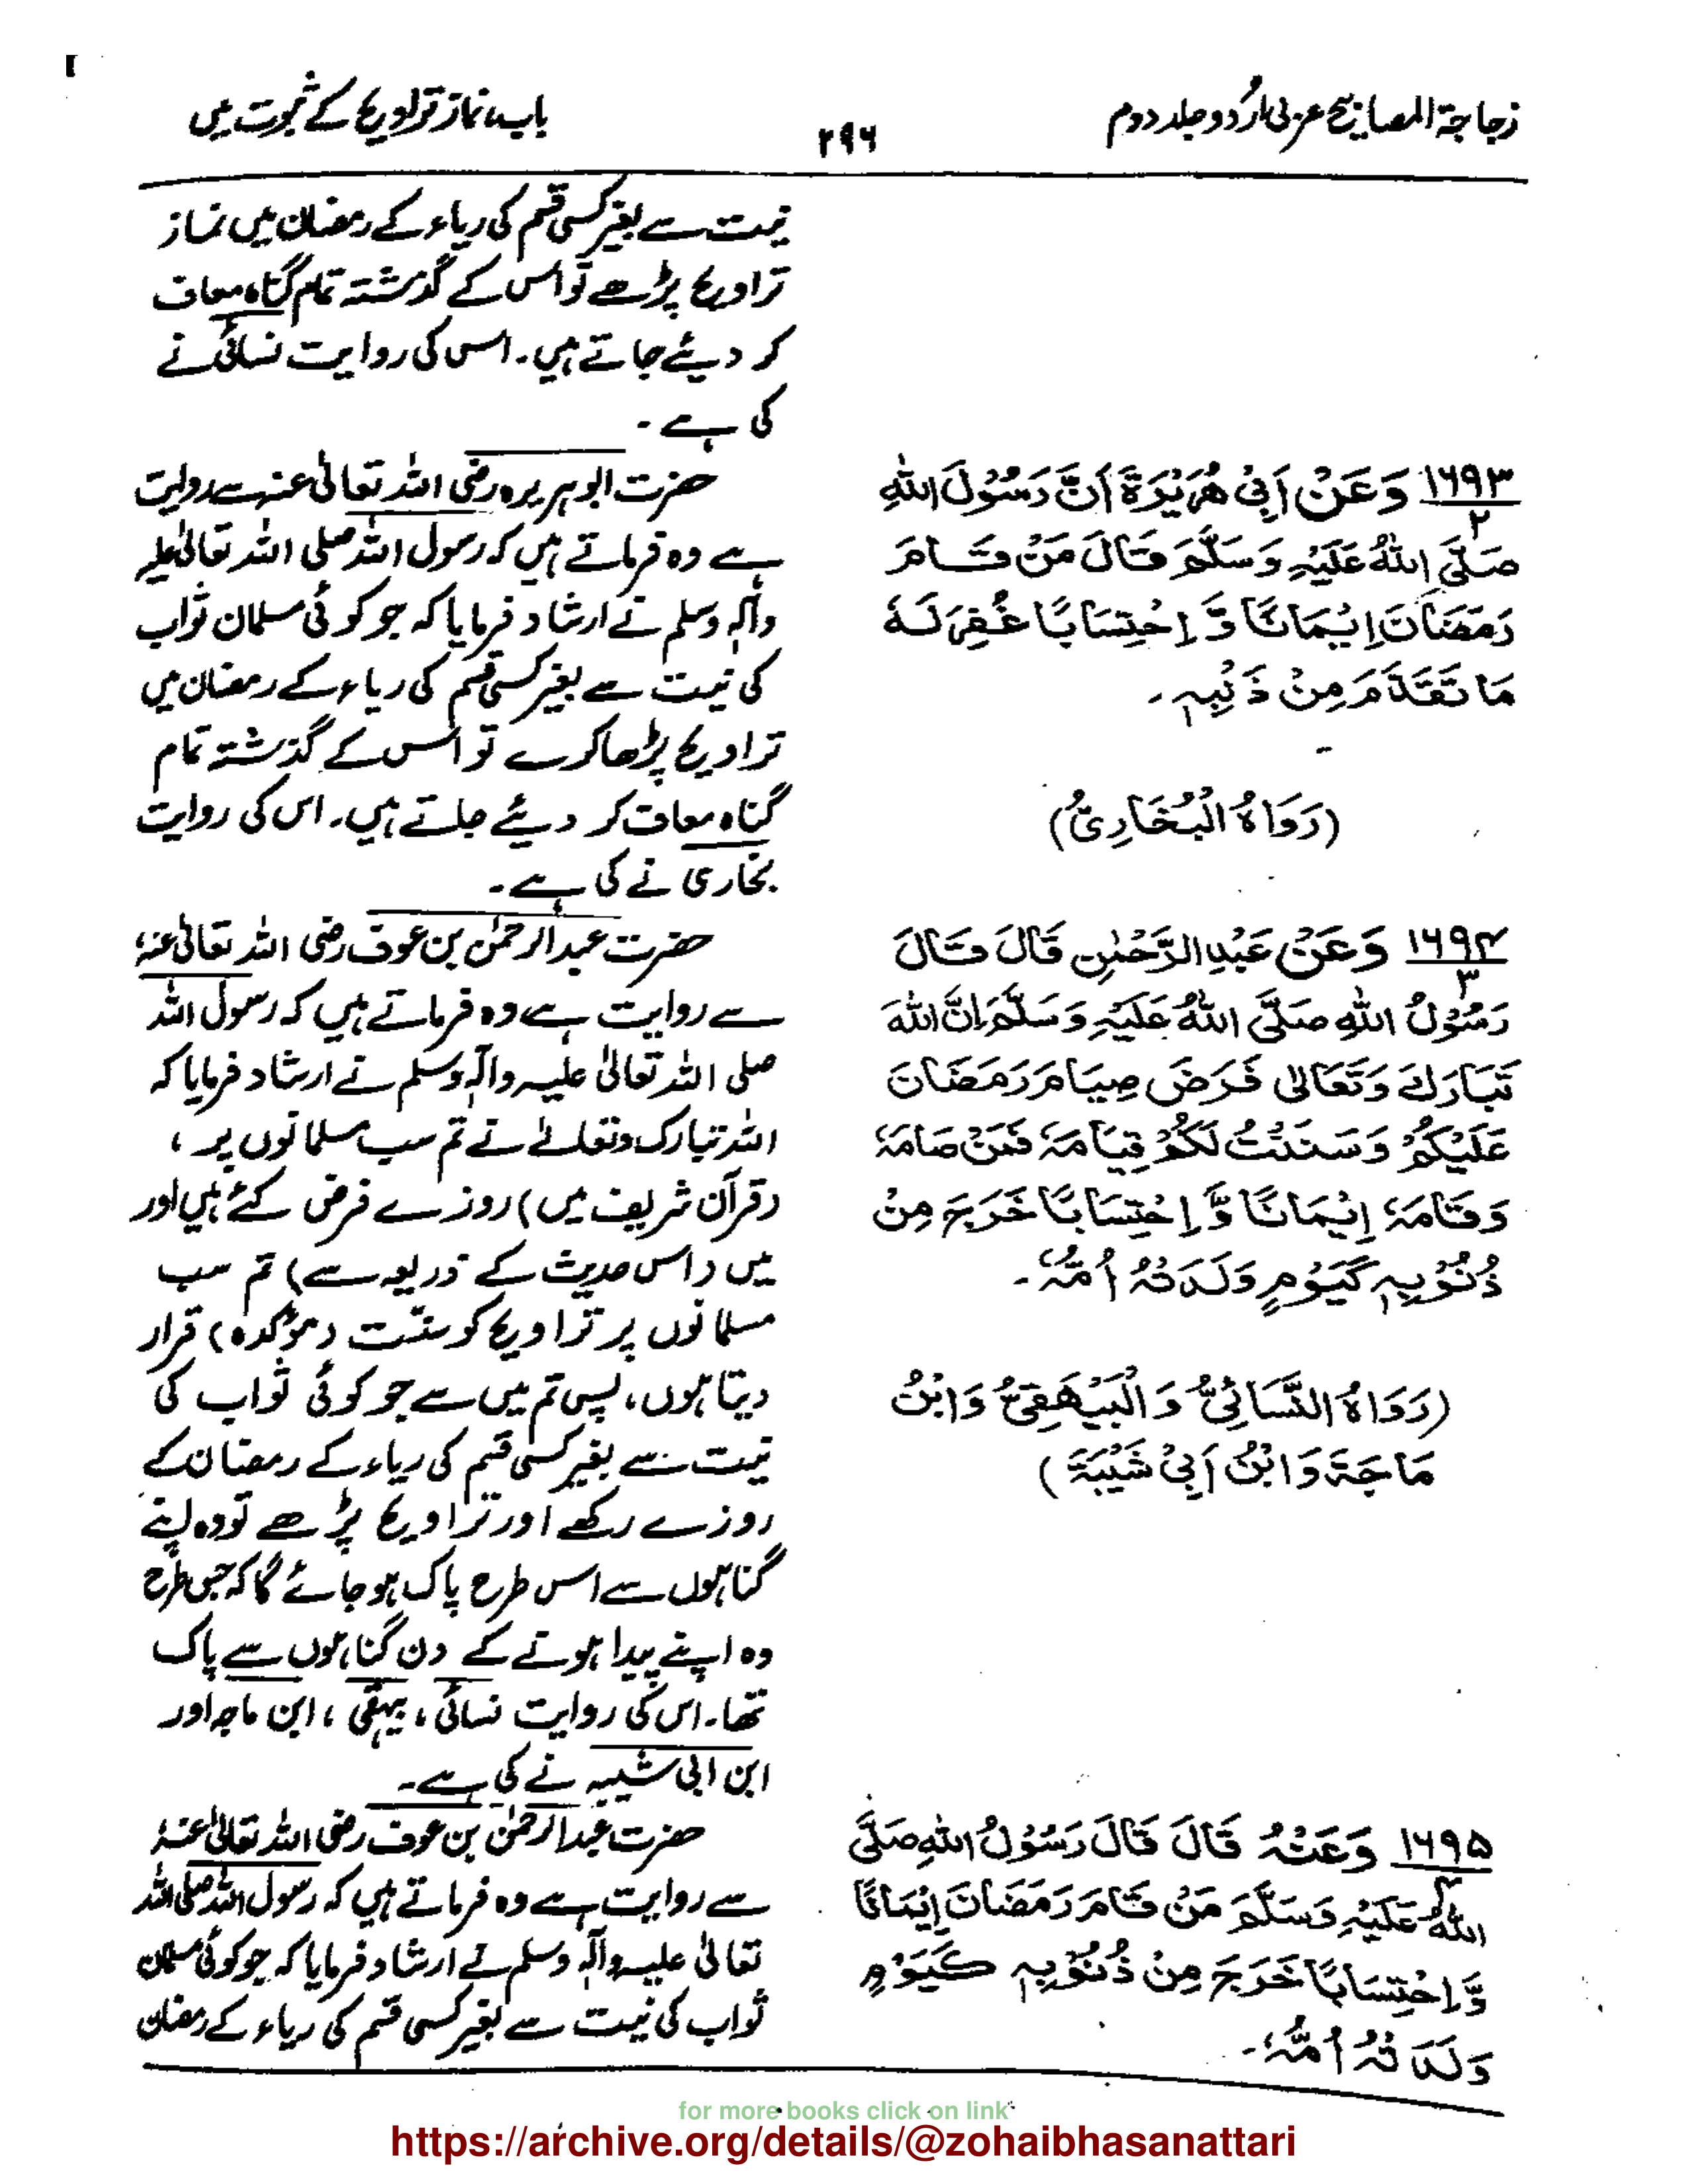 زجاجۃ المصابیح عربی اُردو جلد دوم
۲۹۶
باب، نماز تراویح کے ثبوت میں
نیت سے بغیر کسی قسم کی ریاء کے رمضان میں نماز
تراویح پڑھے تو اس کے گذشتہ تمام گناہ معاف
کر دیئے جاتے ہیں۔ اس کی روایت نسائی نے
کی ہے۔
۱۶۹۳ وَعَنْ اَبِیْ هُرَيْرَةَ اَنَّ رَسُوْلَ اللّٰهِ
۲
صَلَّى اللّٰهُ عَلَيْهِ وَسَلَّمَ قَالَ مَنْ قَامَ
رَمَضَانَ اِيْمَانًا وَّ اِحْتِسَابًا غُفِرَ لَهٗ
مَا تَقَدَّمَ مِنْ ذَنْبِهٖ۔
(رَوَاهُ الْبُخَارِىُّ)
حضرت ابوہریرہ رضی اللہ تعالیٰ عنہ سے روایت
ہے وہ فرماتے ہیں کہ رسول اللہ صلی اللہ تعالیٰ علیہ
وآلہٖ وسلم نے ارشاد فرمایا کہ جو کوئی مسلمان ثواب
کی نیت سے بغیر کسی قسم کی ریاء کے رمضان میں
تراویح پڑھا کرے تو اس کے گذشتہ تمام
گناہ معاف کر دیئے جاتے ہیں۔ اس کی روایت
بخاری نے کی ہے۔
۱۶۹۴ وَعَنْ عَبْدِ الرَّحْمٰنِ قَالَ قَالَ
۳
رَسُوْلُ اللّٰهِ صَلَّى اللّٰهُ عَلَيْهِ وَسَلَّمَ اِنَّ اللّٰهَ
تَبَارَكَ وَتَعَالٰى فَرَضَ صِيَامَ رَمَضَانَ
عَلَيْكُمْ وَسَنَنْتُ لَكُمْ قِيَامَهٗ فَمَنْ صَامَهٗ
وَقَامَهٗ اِيْمَانًا وَّ اِحْتِسَابًا خَرَجَ مِنْ
ذُنُوْبِهٖ كَيَوْمٍ وَلَدَتْهُ اُمُّهٗ۔
(رَوَاهُ النَّسَائِىُّ وَ الْبَيْهَقِىُّ وَابْنُ
مَاجَةَ وَابْنُ اَبِیْ شَيْبَةَ)
حضرت عبدالرحمٰن بن عوف رضی اللہ تعالیٰ عنہ،
سے روایت ہے وہ فرماتے ہیں کہ رسول اللہ
صلی اللہ تعالیٰ علیہ وآلہٖ وسلم نے ارشاد فرمایا کہ
اللہ تبارک وتعالےٰ نے تم سب مسلمانوں پر ،
(قرآن شریف میں) روزے فرض کئے ہیں اور
میں (اس حدیث کے ذریعہ سے) تم سب
مسلمانوں پر تراویح کو سنّت (مؤکدہ) قرار
دیتا ہوں، پس تم میں سے جو کوئی ثواب کی
نیت سے بغیر کسی قسم کی ریاء کے رمضان کے
روزے رکھے اور تراویح پڑھے تو وہ اپنے
گناہوں سے اس طرح پاک ہو جائے گا کہ جس طرح
وہ اپنے پیدا ہوتے کے دن گناہوں سے پاک
تھا۔ اس کی روایت نسائی ، بیہقی ، ابن ماجہ اور
ابن ابی شیبہ نے کی ہے۔
۱۶۹۵ وَعَنْهُ قَالَ قَالَ رَسُوْلُ اللّٰهِ صَلَّى
۴
اللّٰهُ عَلَيْهِ وَسَلَّمَ مَنْ قَامَ رَمَضَانَ اِيْمَانًا
وَّ اِحْتِسَابًا خَرَجَ مِنْ ذُنُوْبِهٖ كَيَوْمِ
وَلَدَتْهُ اُمُّهٗ۔
حضرت عبدالرحمٰن بن عوف رضی اللہ تعالیٰ عنہٗ
سے روایت ہے وہ فرماتے ہیں کہ رسول اللہ صلی اللہ
تعالیٰ علیہ وآلہٖ وسلم نے ارشاد فرمایا کہ جو کوئی مسلمان
ثواب کی نیت سے بغیر کسی قسم کی ریاء کے رمضان
for more books click on link
https://archive.org/details/@zohaibhasanattari